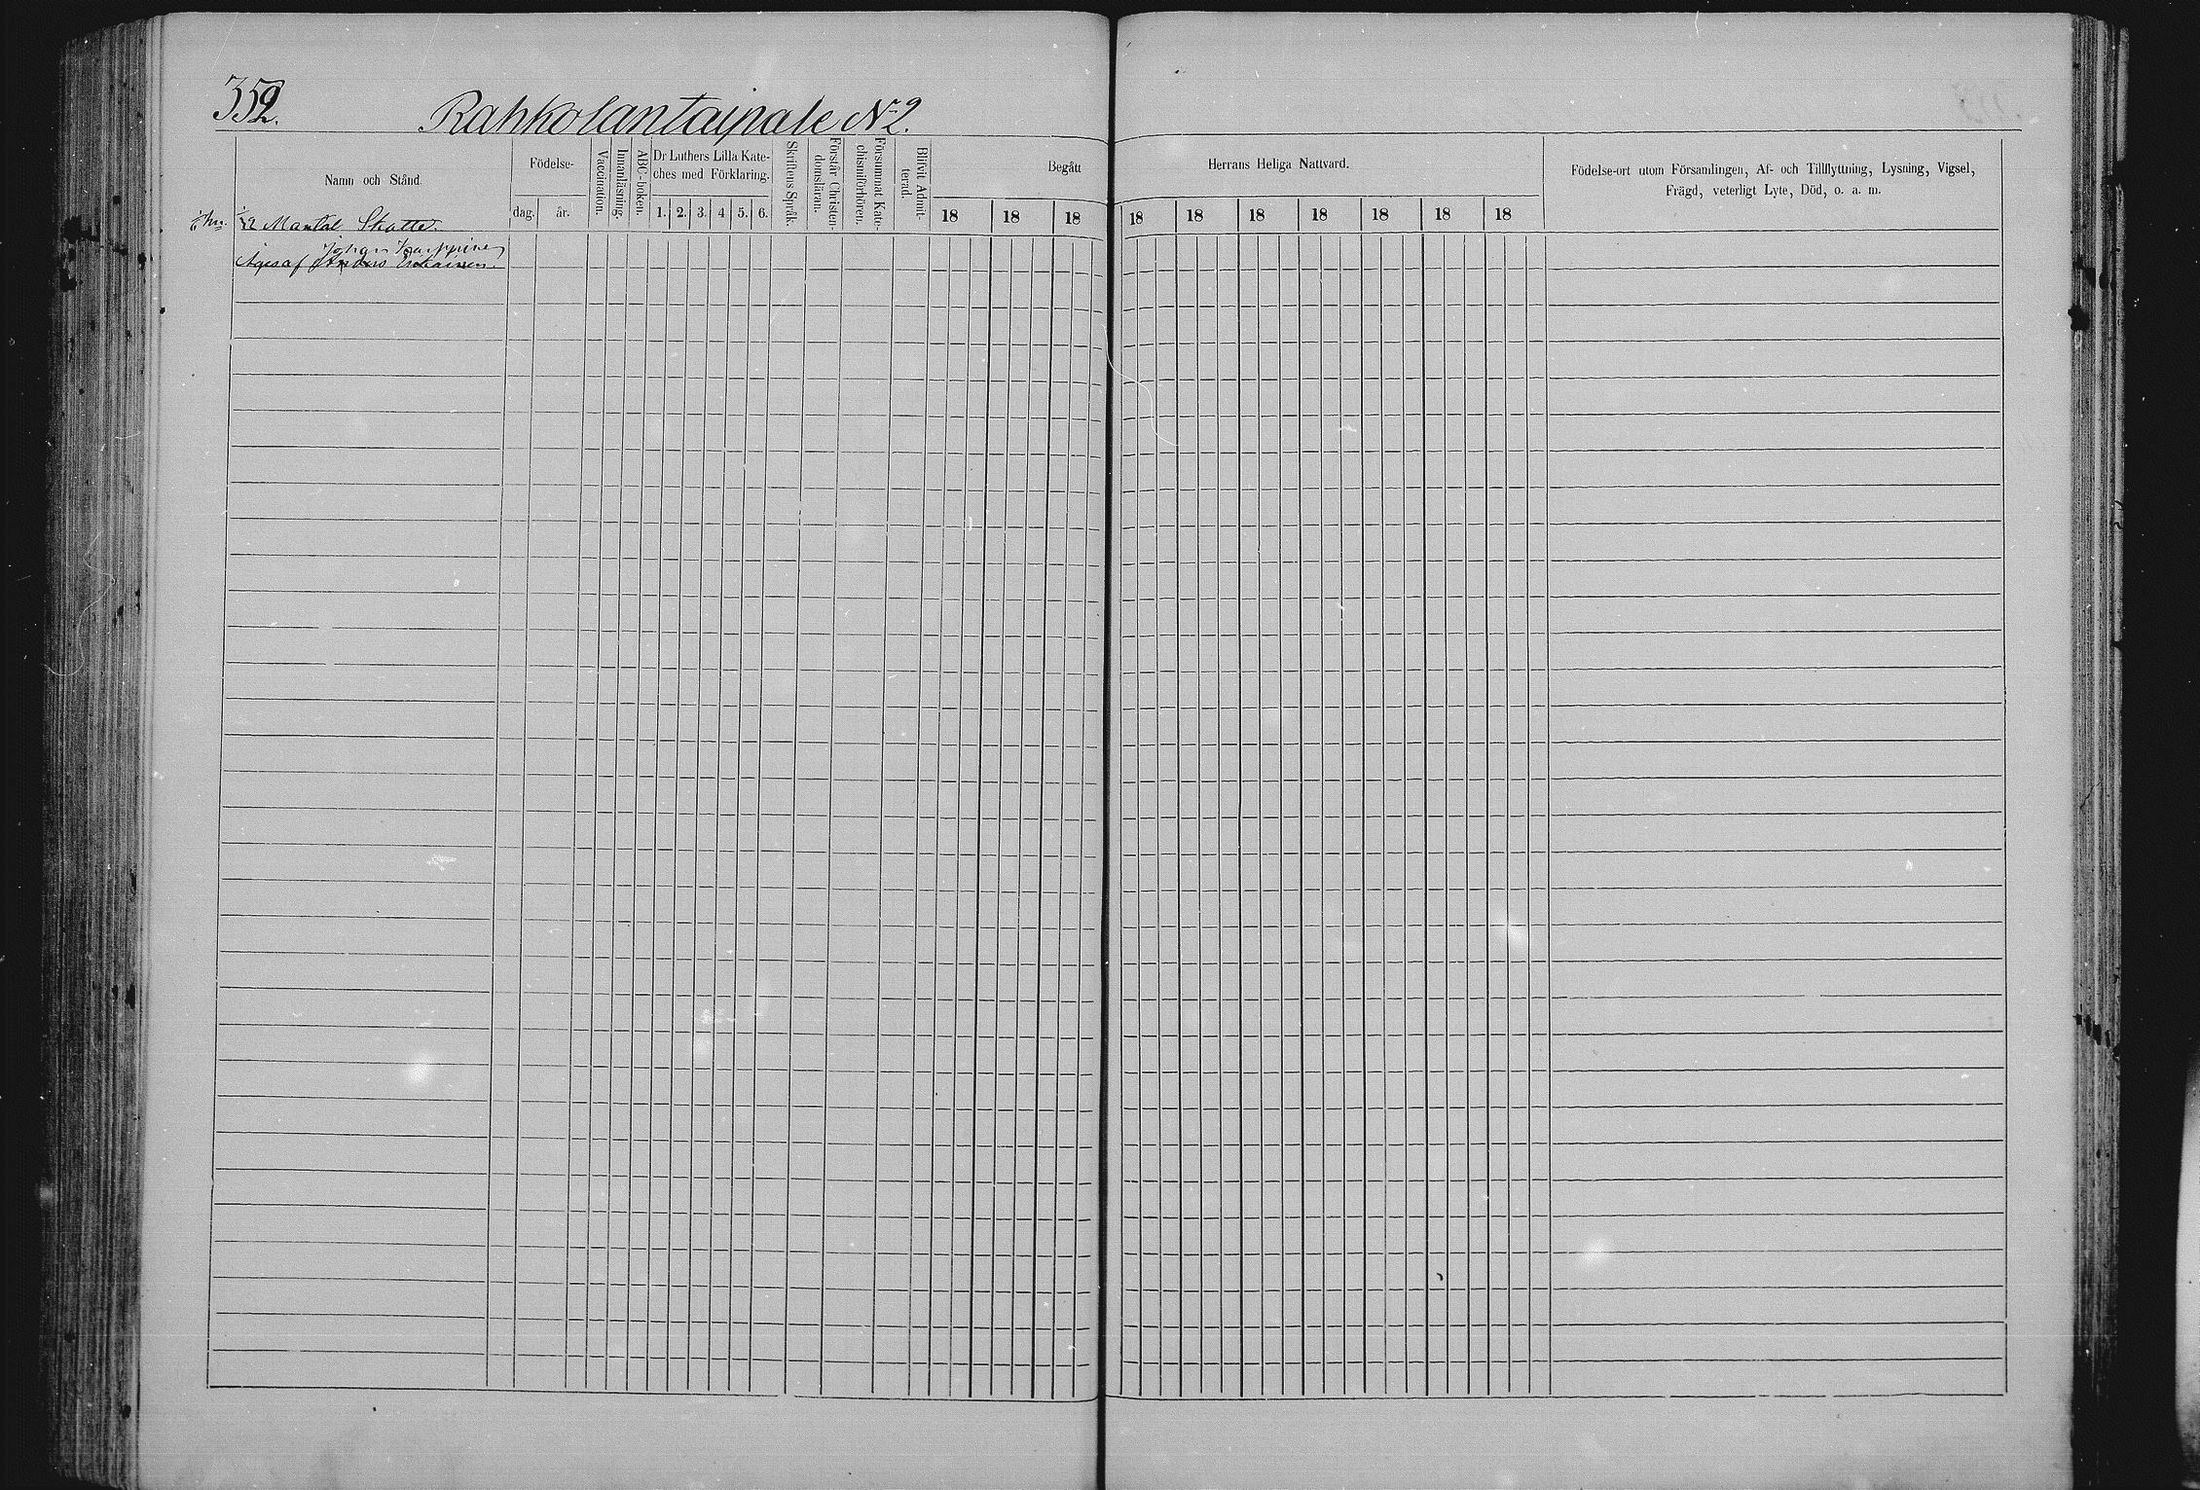 352.
Rahkolantaipale № 2.
Namn och Stånd.
Födelse-
dag.
år.
Vaccination.
Innanläsning.
ABC-boken.
Dr Luthers Lilla Kate-
ches med Förklaring.
1. 2. 3. 4 5. 6.
Skriftens Språk.
Förstår Christen-
domsläran.
Försummat Kate-
chismiförhören.
Blifvit Admit-
terad.
Begått
18 18 18
Herrans Heliga Nattvard.
18 18 18 18 18 18 18
Födelse-ort utom Församlingen, Af- och Tillflyttning, Lysning, Vigsel,
Frägd, veterligt Lyte, Död, o. a. m.
Mantal Skatte.
Johan
Äges af Anders